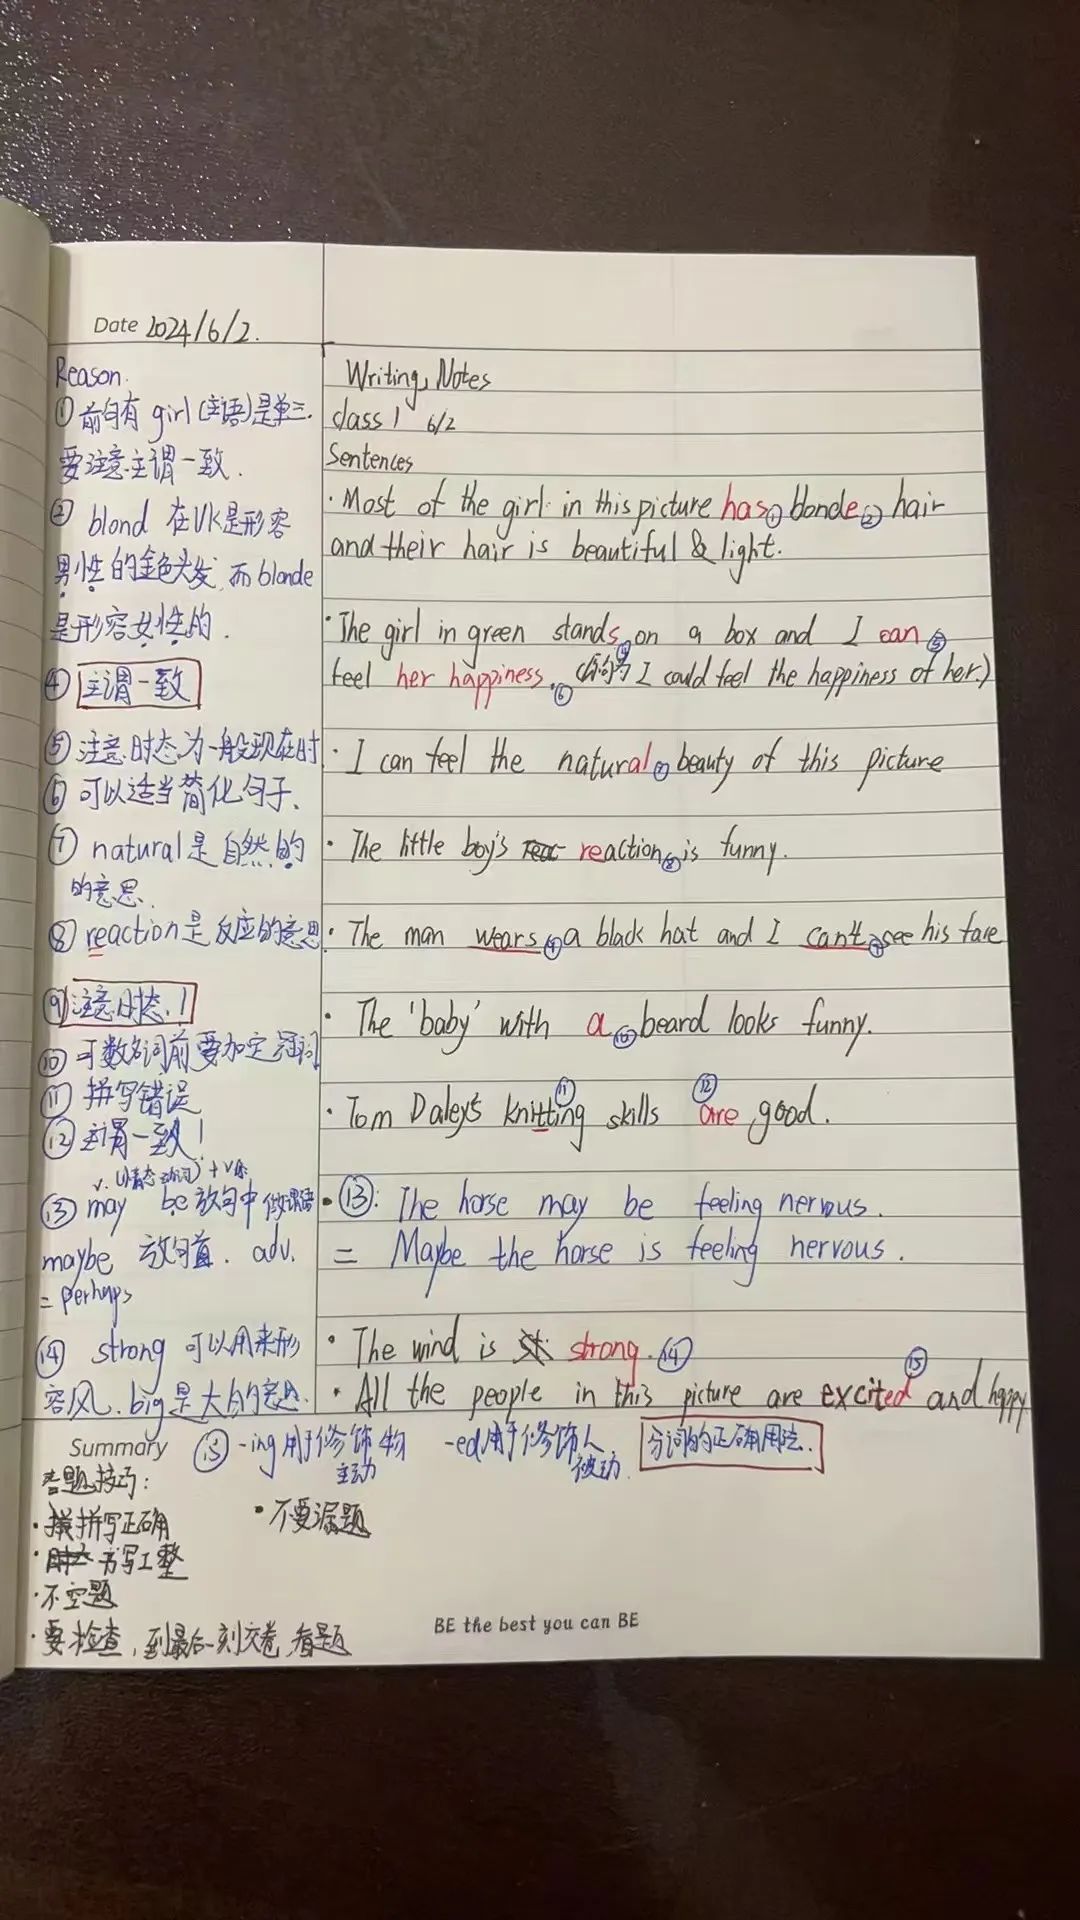 Date 2024/6/2.
Reason.
① 前句有 girl (主语)是单三.
要注意主谓一致.
② blond 在UK是形容
男性的金色头发,而 blonde
是形容女性的.
④ 主谓一致
⑤ 注意时态为一般现在时
⑥ 可以适当简化句子、
⑦ natural是自然的
的意思.
⑧ reaction是反应的意思
⑨ 注意时态!
⑩ 可数名词前要加定冠词
⑪ 拼写错误
⑫ 主谓一致!
v. (情态动词)+v原
⑬ may be放句中做谓语
maybe 放句首. adv.
= perhaps
⑭ strong 可以用来形
容风.big是大的意思.
Writing Notes
class 1 6/2
Sentences
· Most of the girl in this picture has① blonde② hair
and their hair is beautiful & light.
· The girl in green stands④ on a box and I can⑤
feel her happiness.⑥ (原句为 I could feel the happiness of her.)
· I can feel the natural⑦ beauty of this picture
· The little boy's reaction⑧ is funny.
· The man wears⑨ a black hat and I can't⑨ see his face
· The 'baby' with a⑩ beard looks funny.
⑪ ⑫
· Tom Daley's knitting skills are good.
· ⑬: The horse may be feeling nervous.
= Maybe the horse is feeling nervous.
· The wind is strong.⑭
⑮
· All the people in this picture are excited and happy
Summary
⑮ -ing用于修饰物 -ed用于修饰人 分词的正确用法.
主动 被动
答题技巧:
· 拼写正确
· 不要漏题
· 书写工整
· 不空题
· 要检查,到最后一刻交卷,看题
BE the best you can BE